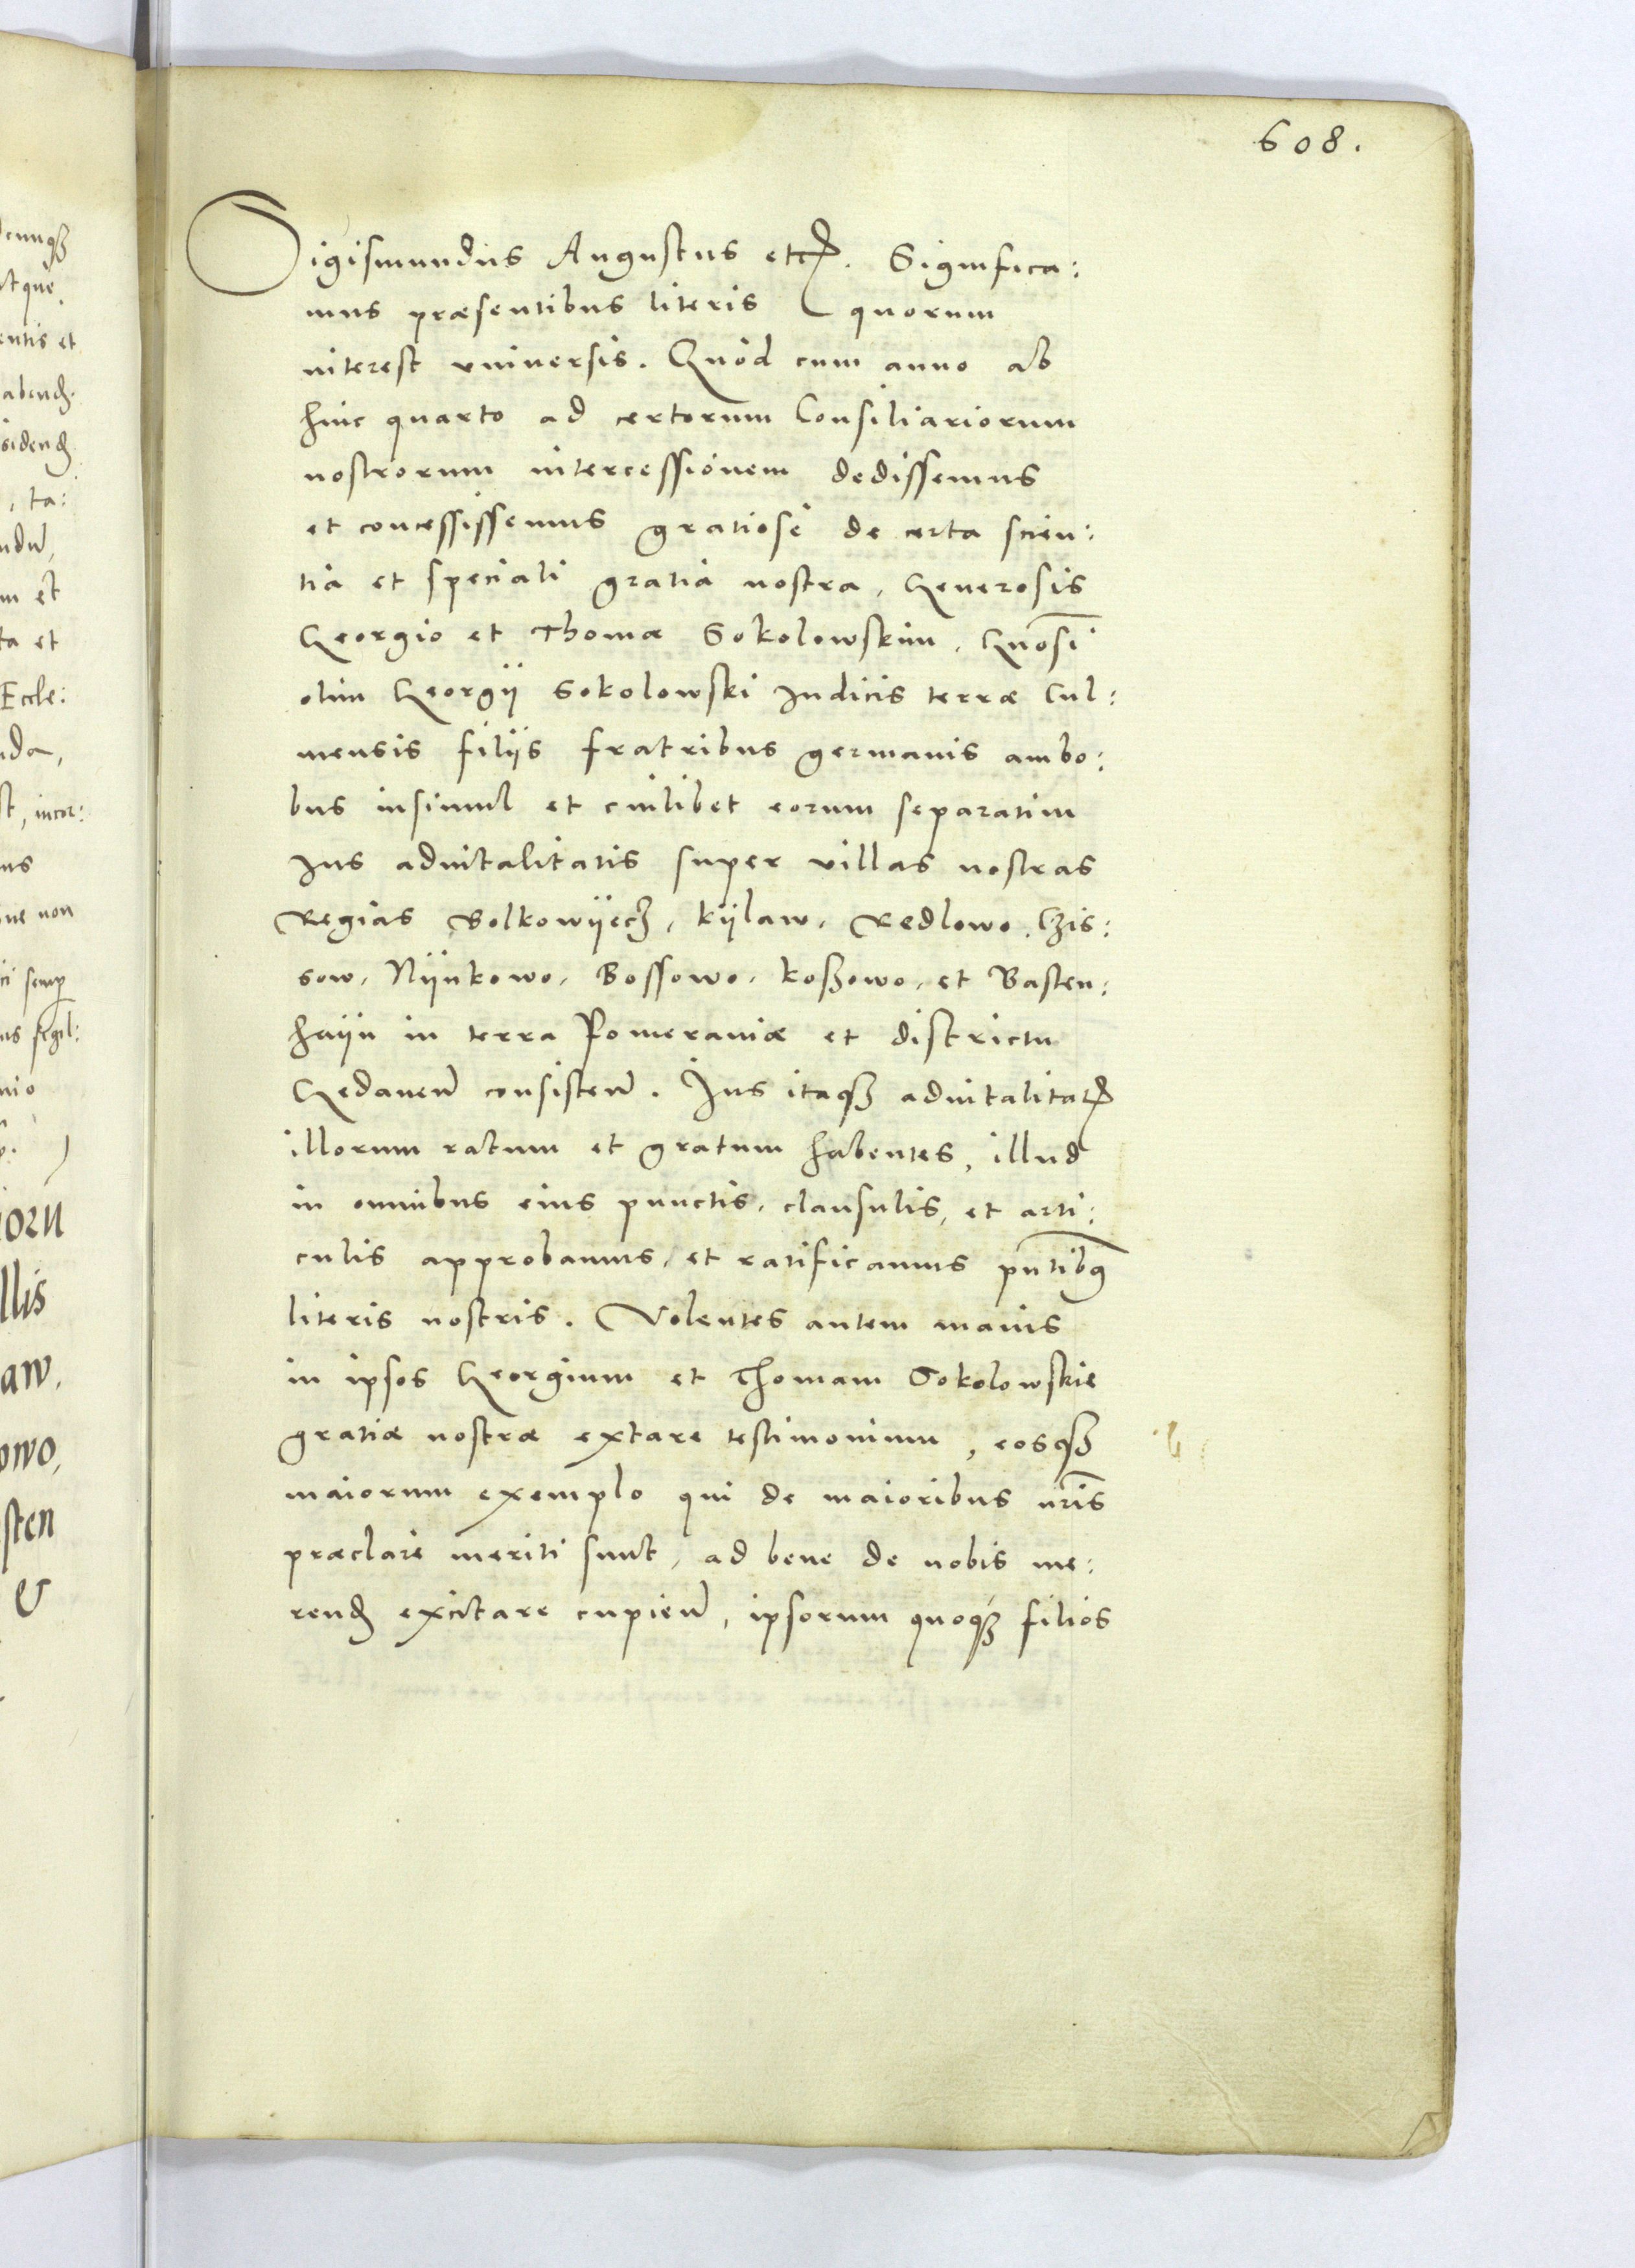 608.
Sigismundus Augustus etc. Significa:
mus præsentibus literis quorum
interest vniuersis. Quòd cum anno ab
hinc quarto ad certorum Consiliariorum
nostrorum intercessionem dedissemus
et concessissemus gratiosè de certa scien:
tia et speciali gratia nostra, Generosis
Georgio et Thomæ Sokolowskim, Gnosi
olim Georgÿ Sokolowski Iudicis terræ Cul:
mensis filÿs fratribus germanis ambo:
bus insimul et cuilibet eorum separatim
Ius aduitalitatis super villas nostras
Regias Bolkowÿecz, Kÿlaw, Redlowo, Czis:
sow, Nÿnkowo, Bossowo, Koßowo, et Basten:
haÿn in terra Pomeraniæ et districtu
Gedanen consisten. Ius itaqȝ aduitalitat
illorum ratum et gratum habentes, illud
in omnibus eius punctis, clausulis, et arti:
culis approbamus, et ratificamus pntibus
literis nostris. Volentes autem maius
in ipsos Georgium et Thomam Sokolowskie
gratiæ nostræ extare testimonium, eosqȝ
maiorum exemplo qui de maioribus nris
præclarè meriti sunt, ad bene de nobis me:
rend excitare cupien, ipsorum quoqȝ filios